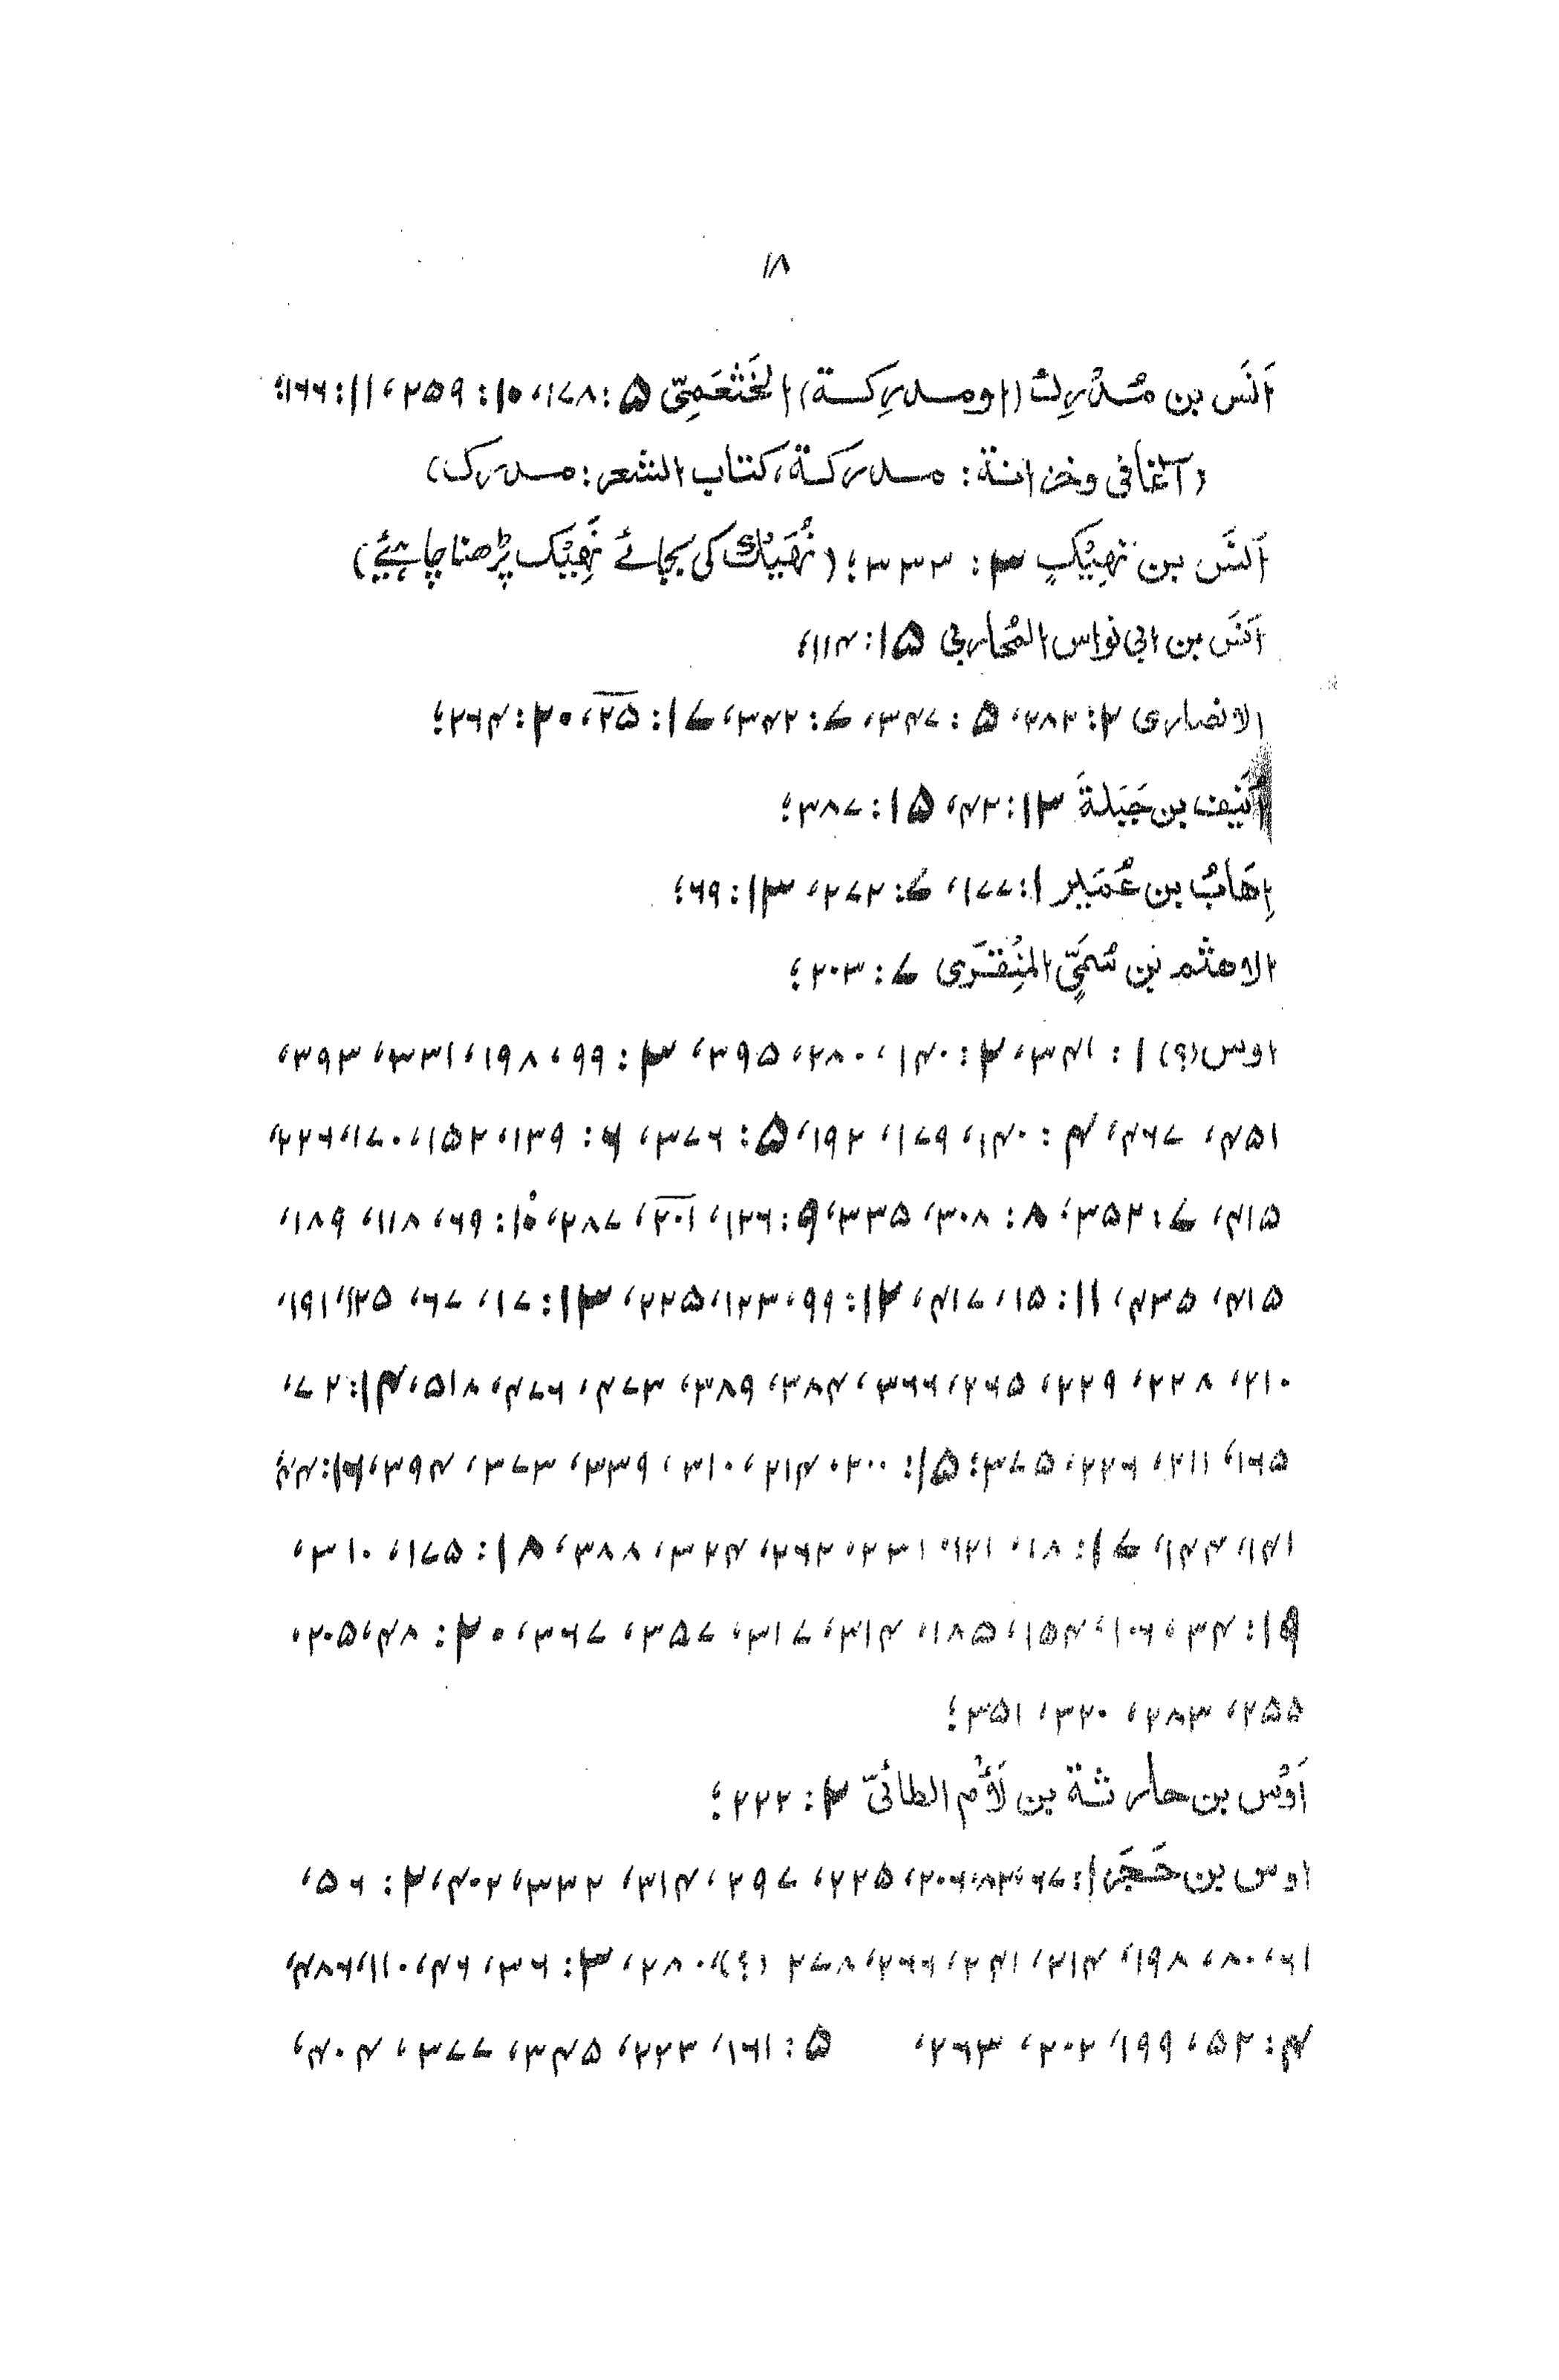 ۱۸
اَنَس بن مُدْرِك (او مدرِکة) الخَثْعَمِیّ ۵: ۱۷۸، ۱۰: ۲۵۹، ۱۱: ۱۶۶؛
(آغانی وخزانة: مدرکة، کتاب الشعر: مدرک)
اَنَس بن نَهِیْکٍ ۳: ۳۳۳؛ (نُهَیْك کی بجائے نَهِیْک پڑھنا چاہیئے)
اَنَس بن ابی نواس المُحاربی ۱۵: ۱۱۴،
الانصاری ۲: ۲۸۲، ۵: ۳۴۷، ۷: ۳۴۲، ۱۷: ۲۵، ۲۰: ۲۶۴؛
اُنَیف بن جَبَلةَ ۱۳: ۴۲، ۱۵: ۳۸۷؛
اِهَابُ بن عُمَیر ۱: ۱۷۷، ۷: ۲۷۲، ۱۳: ۶۹؛
الاهتم بن سُمَیٍّ المِنْقَری ۷: ۲۰۳؛
اوس (؟) ۱: ۳۴۱، ۲: ۱۴۰، ۲۸۰، ۳۹۵، ۳: ۹۹، ۱۹۸، ۳۳۱، ۳۹۳،
۴۵۱، ۴۶۷، ۴: ۱۴۰، ۱۷۹، ۱۹۲، ۵: ۳۷۶، ۶: ۱۳۹، ۱۵۲، ۱۷۰، ۲۲۶،
۴۱۵، ۷: ۳۵۲، ۸: ۳۰۸، ۳۳۵، ۹: ۱۲۶، ۲۰۱، ۲۸۷، ۱۰: ۶۹، ۱۱۸، ۱۸۹،
۴۱۵، ۴۳۵، ۱۱: ۱۵، ۴۱۷، ۱۲: ۹۹، ۱۲۳، ۲۲۵، ۱۳: ۱۷، ۶۷، ۱۲۵، ۱۹۱،
۲۱۰، ۲۲۸، ۲۲۹، ۲۶۵، ۳۶۶، ۳۷۴، ۳۷۹، ۴۷۳، ۴۷۶، ۵۱۸، ۱۴: ۷۲،
۱۶۵، ۲۱۱، ۲۲۶، ۳۷۵؛ ۱۵: ۲۰۰، ۲۱۴، ۳۱۰، ۳۳۹، ۳۷۳، ۳۹۴، ۱۶: ۴۴،
۱۴۱، ۱۴۴، ۱۷: ۱۸، ۱۲۱، ۲۳۱، ۲۶۲، ۳۲۴، ۳۸۸، ۱۸: ۱۷۵، ۳۱۰،
۱۹: ۳۴، ۱۰۶، ۱۵۴، ۱۸۵، ۳۱۴، ۳۱۷، ۳۵۷، ۳۶۷، ۲۰: ۴۸، ۲۰۵،
۲۵۵، ۲۸۳، ۳۲۰، ۳۵۱؛
اَوْس بن حارثة بن لَأْم الطائیّ ۲: ۲۲۲؛
اوس بن حَجَر ۱: ۶۷، ۸۳، ۲۰۶، ۲۲۵، ۲۹۷، ۳۱۴، ۳۳۲، ۴۰۲، ۲: ۵۶،
۶۱، ۸۰، ۱۹۸، ۲۱۴، ۲۴۱، ۲۶۶، ۲۷۸ (؟)، ۲۸۰، ۳: ۳۶، ۴۶، ۱۱۰، ۴۸۶،
۴: ۵۲، ۱۹۹، ۲۰۲، ۲۶۳، ۵: ۱۶۱، ۲۲۳، ۳۴۵، ۳۷۷، ۴۰۴،